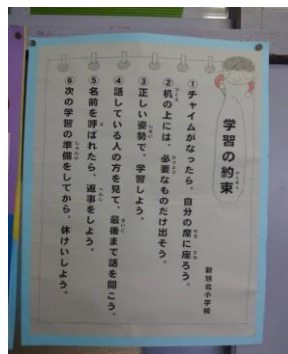 学習の約束
新旭北小学校
①チャイムがなったら、自分の席に座ろう。
②机の上には、必要なものだけ出そう。
③正しい姿勢で、学習しよう。
④話している人の方を見て、最後まで話を聞こう。
⑤名前を呼ばれたら、返事をしよう。
⑥次の学習の準備をしてから、休けいしよう。